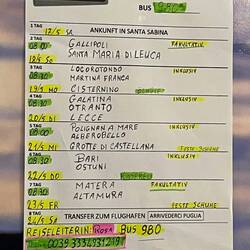 BUS 980
1 TAG
17/5 SA ANKUNFT IN SANTA SABINA
2 TAG
08:00 GALLIPOLI FAKULTATIV
18/5 SO SANTA MARIA DI LEUCA
3 TAG
08:30 LOCOROTONDO INKLUSIV
MARTINA FRANCA
19/5 MO CISTERNINO
4 TAG
08:00 GALATINA INKLUSIV
OTRANTO
20/5 DI LECCE
5 TAG
08:00 POLIGNAN A MARE INKLUSIV
ALBEROBELLO
21/5 MI GROTTE DI CASTELLANA FESTE SCHUHE
6 TAG
08:30 BARI INKLUSIV
OSTUNI
22/5 DO
7 TAG
08:00 MATERA FAKULTATIV
ALTAMURA
23/5 FR FESTE SCHUHE
8 TAG
24/5 SA TRANSFER ZUM FLUGHAFEN ARRIVEDERCI PUGLIA
REISELEITERIN: ROSA BUS 980